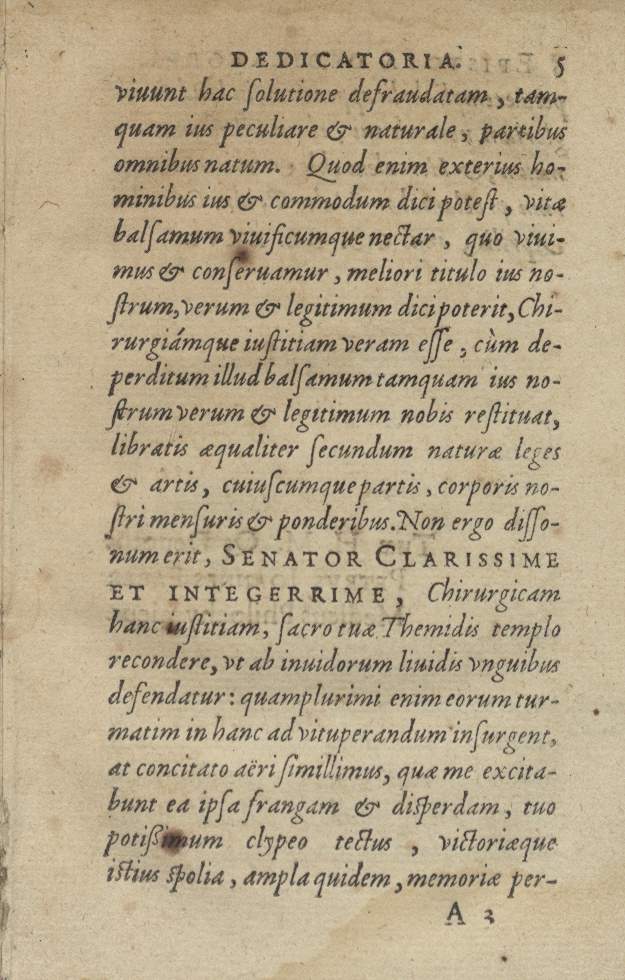 DEDICATORIA. 5
viuunt hac ſolutione defraudatam, tam-
quam ius peculiare & naturale, partibus
omnibus natum. Quod enim exterius ho-
minibus ius & commodum dici poteſt, vitæ
balſamum viuificumque nectar, quo viui-
mus & conſeruamur, meliori titulo ius no-
ſtrum, verum & legitimum dici poterit, Chi-
rurgiámque iuſtitiam veram eſſe, cùm de-
perditum illud balſamum tamquam ius no-
ſtrum verum & legitimum nobis reſtituat,
libratis æqualiter ſecundum naturæ leges
& artis, cuiuſcumque partis, corporis no-
ſtri menſuris & ponderibus. Non ergo diſſo-
num erit, SENATOR CLARISSIME
ET INTEGERRIME, Chirurgicam
hanc iuſtitiam, ſacro tuæ Themidis templo
recondere, vt ab inuidorum liuidis vnguibus
defendatur: quamplurimi enim eorum tur-
matim in hanc ad vituperandum inſurgent,
at concitato aëri ſimillimus, quæ me excita-
bunt ea ipſa frangam & diſperdam, tuo
potiſsimum clypeo tectus, victoriæque
iſtius ſpolia, ampla quidem, memoriæ per-
A 3